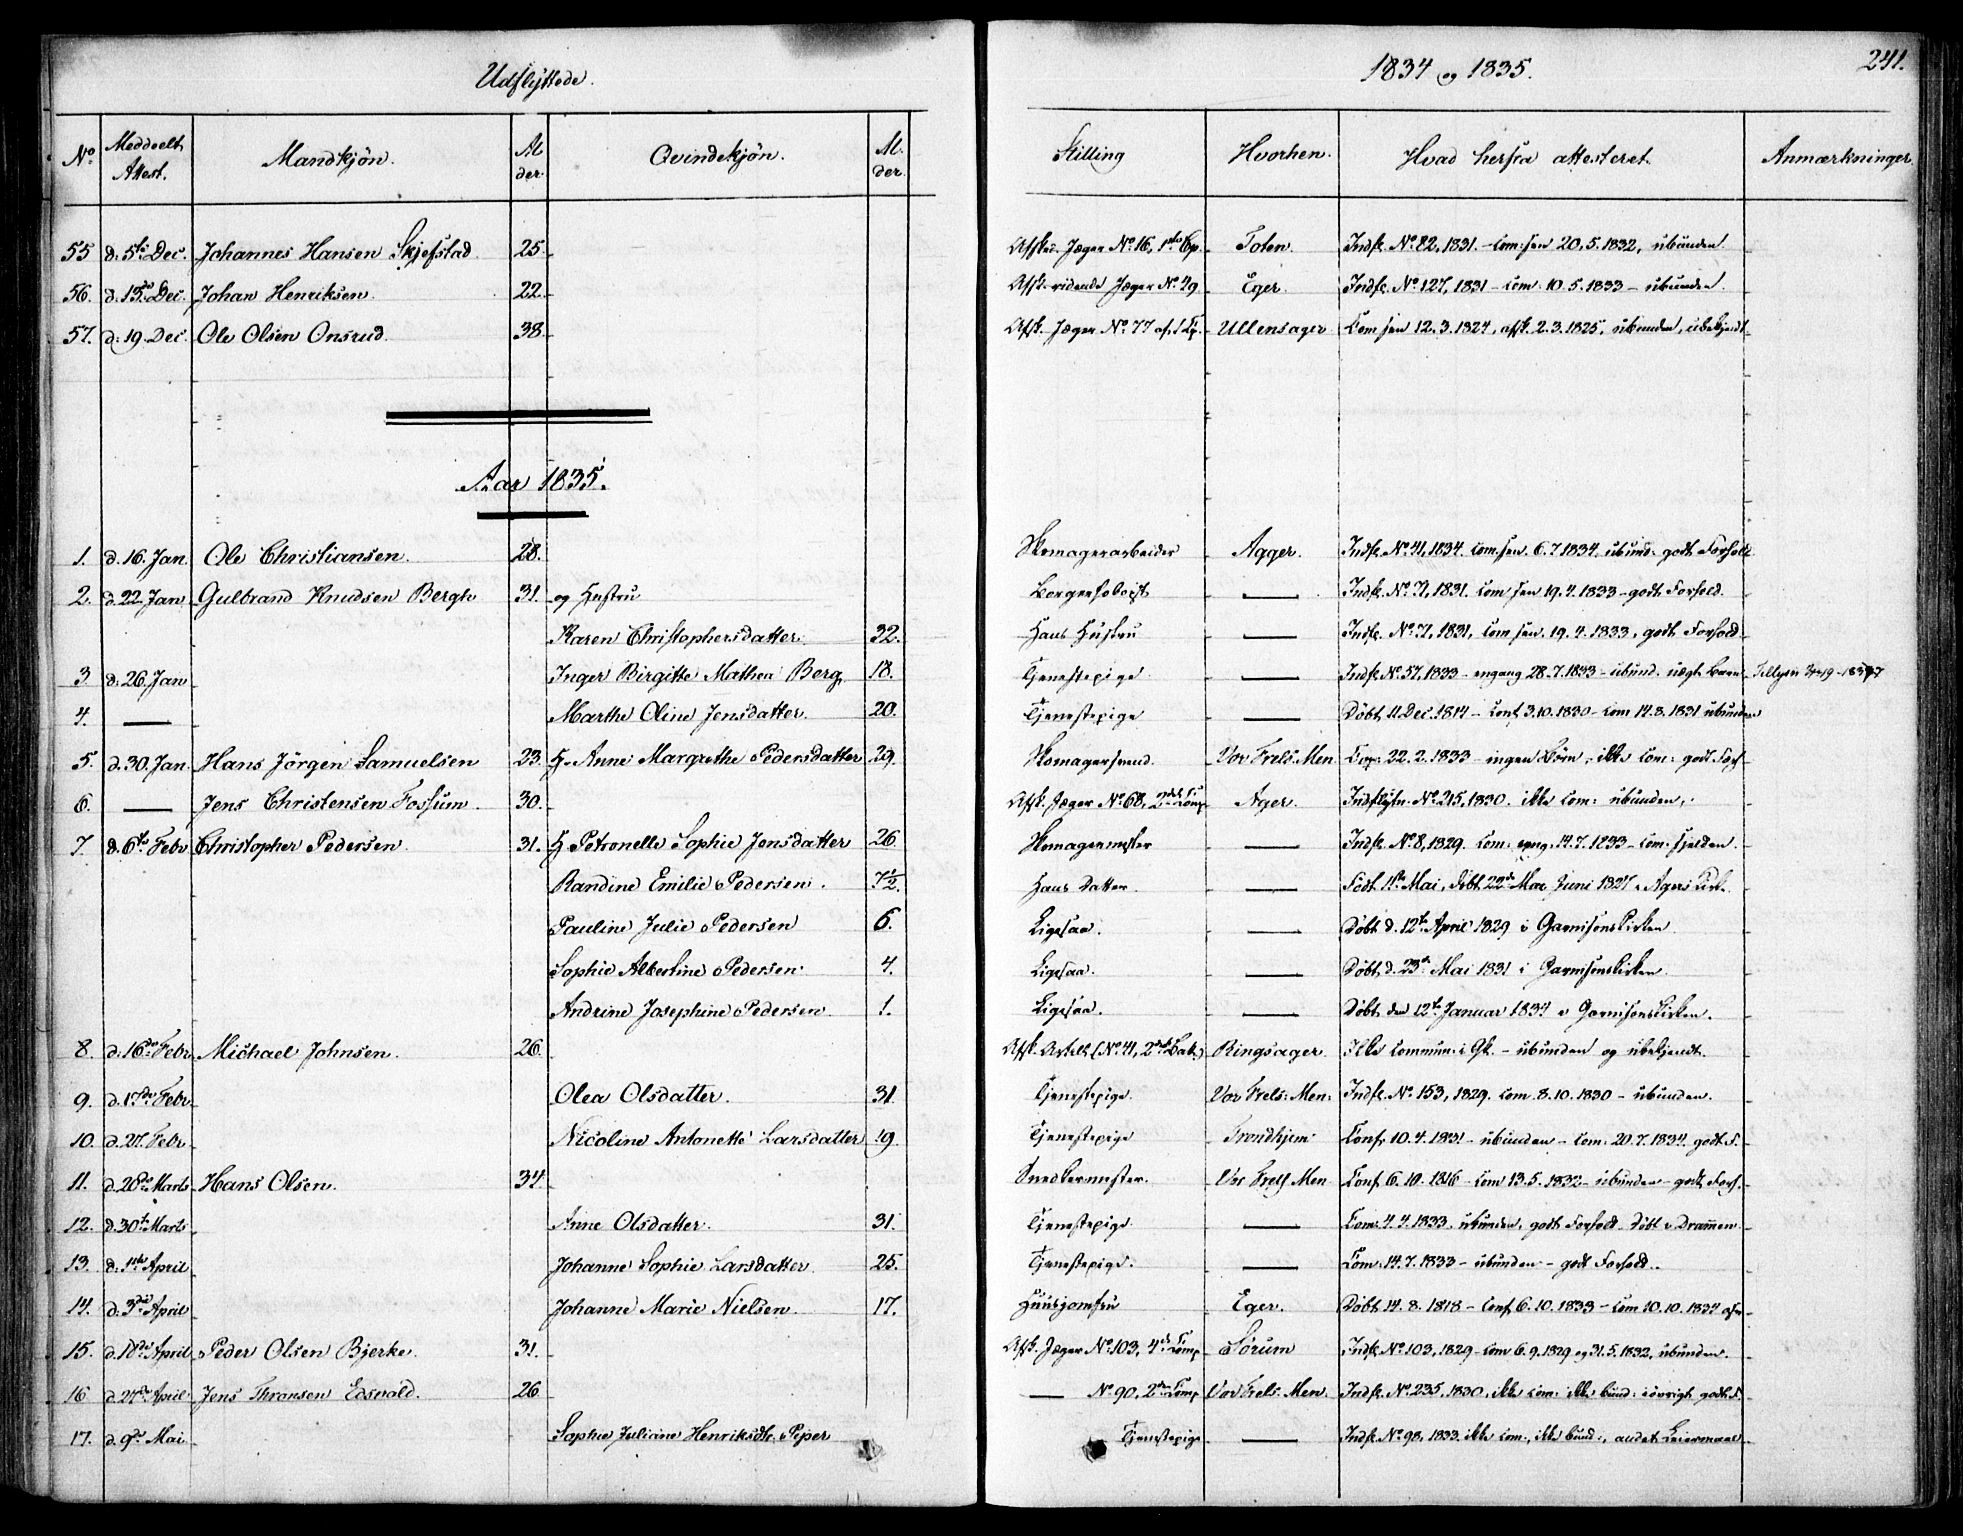 Udflyttede. 1834 og 1835. 241.
No Meddeelt Attest. Mandkjön. Alder. Qvindekjön. Alder. Stilling Hvorhen. Hvad herfra attesteret. Anmærkninger.
55 d. 5te Dec. Johannes Hansen Skjefstad 25. Afsk. Jæger No. 16, 1ste Cp. Toten. Indfl. No. 82, 1831. – Com: sen 20.5.1832, ubunden.
56. d. 13de Dec. Johan Henriksen. 22. Afsk. ridende Jæger No. 49 Eger. Indfl. No. 127, 1831 – Com: 10.5.1833 – ubunden.
57. d. 19. Dec. Ole Olsen Onsrud. 38. Afsk. Jæger No. 77 af 1 Cp. Ullensager Com sen 12.3.1824, afsk. 2.3.1825, ubunden, ubekjendt
Aar 1835.
1. d. 16. Jan. Ole Christiansen. 28. Skomagerarbeider Agger. Indfl. No. 41, 1834. Com. sen. 6.7.1834. ubund: godt Forhold
2. d. 22 Jan Gulbrand Knudsen Bergh 31. og Hustru — Indfl. No. 71, 1831. Com sen 19.4.1833 – godt Forhold.
Karen Christophersdatter. 32. Hans Hustru — Indfl. No. 71, 1831, Com sen. 19.4.1833, godt Forhold.
3 d. 26. Jan Inger Birgitte Mathea Berg 18. Tjenestepige — Indfl. No. 57, 1833 – engang 28.7.1833 – ubund. uægt Barn
4. — Marthe Oline Jensdatter. 20. Tjenestepige — Döbt 11 Dec. 1814 – Conf. 3.10.1830 – Com 14.8.1831 ubunden
5. d. 30. Jan. Hans Jörgen Samuelsen 23. H. Anne Margrethe Pedersdatter 29. Skomagersvend. Vor Frels: Men Cop: 22.2.1833 – ingen Börn, ikke Com: godt Forh
6. — Jens Christensen Fossum. 30. Afsk. Jæger No. 68, 2det Comp Ager. Indflytn. No. 215, 1830. ikke Com: ubunden,
7. d. 6te Febr Christopher Pedersen. 31. H. Petronelle Sophie Jensdatter 26. Skomagermester — Indfl. No. 8, 1829. Com: eng. 14.7.1833 – Com: sjelden.
Randine Emilie Pedersen. 7½. Hans Datter. — Juni 1827 Agers Kirke
Pauline Julie Pedersen 6. Ligesaa. — Döbt d. 12te April 1829 i Garnisonskirken
Sophie Albertine Pedersen. 4. Ligesaa. — Döbt d. 23de Mai 1831 i Garnisonskirken.
Andrine Josephine Pedersen. 1. Ligesaa. — Döbt den 12te Januar 1834 i Garnisonskirken.
8. d. 16de Febr Michael Johnsen. 26. (No. 41, 2det Bat.) Ringsager. Ikke Commun: i Gk. – ubunden og ubekjendt.
9. d. 17de Febr. Olea Olsdatter. 31. Tjenestepige. Vor Frels: Men: Indfl. No. 153, 1829. Com 8.10.1830 – ubunden.
10. d. 27. Febr Nicoline Antonette Larsdatter 19. Tjenestepige Trondhjem Conf. 10.4.1831 – ubunden – Com: 20.7.1834 godt F.
11. d. 28de Marts Hans Olsen. 34. Snedkermester. Vor Frels Men Conf. 6.10.1816 – Com 13.5.1832 – ubunden – godt Forh.
12. d. 30te Marts Anne Olsdatter. 31. Tjenestepige — Com: 4.4.1833. ubunden, godt Forhold. Döbt i Drammen
13. d. 1ste April Johanne Sophie Larsdatter 25. Tjenestepige. — Com: 14.7.1833 – ubunden – godt Forhold.
14. d. 3die April Johanne Marie Nielsen. 17. Huusjomfru Eger. Döbt 14.8.1818 – Conf 6.10.1833 – Com 10.10.1834
15. d. 18de April Peder Olsen Bjerke. 31. Afsk. Jæger No. 103, 4de Comp Sörum Indfl. No. 103, 1829 – Com 6.9.1829 og 31.5.1832, ubunden.
16 d. 27de April Jens Thronsen Edsvold. 26 — No. 90, 2den Comp Vor Frels: Men. Indfl. No. 235, 1830, ikke Com: ikke bund: iövrigt godt F.
17. d. 9de Mai Sophie Juliane Henriksdtr. Piper Tjenestepige — Indfl. No. 98, 1833. ikke Com:, ikke bund:, andet Leiermaal